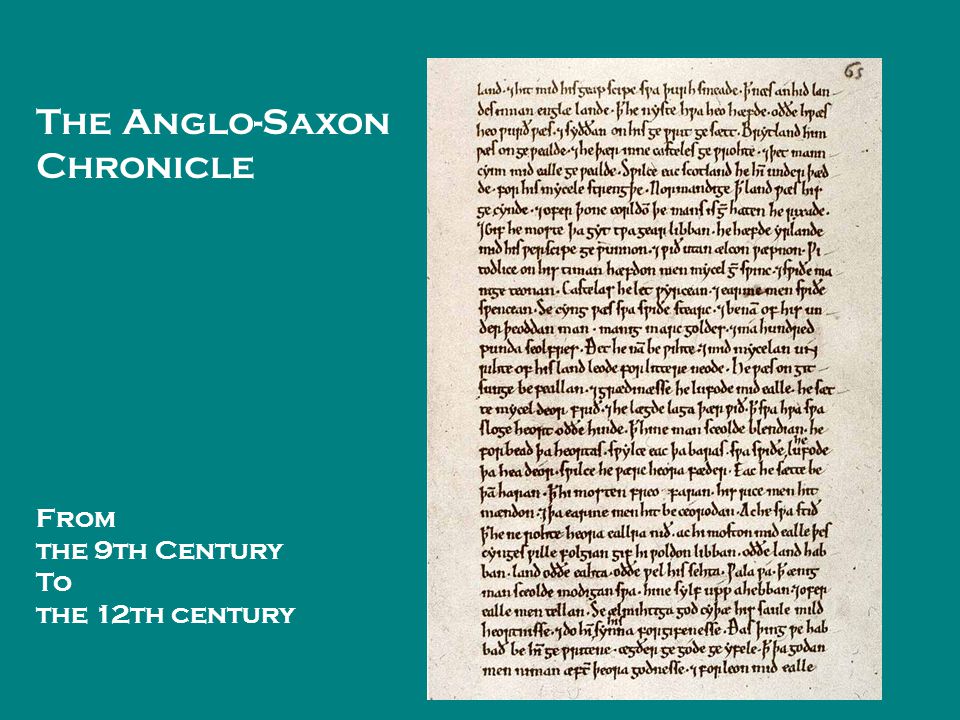 The Anglo-Saxon
Chronicle
From
the 9th Century
To
the 12th century
65
land. ⁊ hit mid his geapscipe swa þurh smeade. ꝥ næs an hid lan
des innan engla lande. ꝥ he nyste hƿa heo hæfde. oððe hƿæs
heo ƿurð ƿæs. ⁊ syððan on his ge ƿrit ge sætt. Brytland him
ƿæs on ge ƿealde. ⁊ he þær inne casteles ge ƿrohte. ⁊ þet mann
cynn mid ealle ge ƿealde. Sƿilce eac scotland he hī under þæd
de. for his mycele strengþe. Normandige ꝥ land ƿæs his
ge cynde. ⁊ ofer þone eorldō þe mans is ge haten he rixade.
⁊ gif he moste þa gyt tƿa gear libban. he hæfde yrlande
mid his ƿerscipe ge ƿunnon. ⁊ ƿið utan ælcon ƿæpnon. Ƿi
todlice on his timan hæfdon men mycel ge sƿinc. ⁊ sƿiðe ma
nige teonan. Castelas he let ƿyrcean. ⁊ earme men sƿiðe
sƿencean. Se cyng ƿæs sƿa sƿiðe stearc. ⁊ benā of his un
der þeoddan man. manig marc goldes. ⁊ ma hundred
punda seolfres. Ðet he nā be ƿihte. ⁊ mid mycelan un
rihte of his land leode for litte re neode. He ƿæs on git
sunge be feallan. ⁊ grædinæsse he lufode mid ealle. he sæt
te mycel deor frið. ⁊ he lægde laga þær ƿið. ꝥ sƿa hƿa sƿa
sloge heort oððe hinde. ꝥ hine man sceolde blendian. he
forbead þa heortas. sƿylce eac þa baras. sƿa sƿiðe he lufode
þa hea deor. sƿilce he ƿære heora fæder. Eac he sætte be
þā haran. ꝥ hi mosten freo faran. his rice men hit
mændon. ⁊ þa earme men hit be ceorodan. Ac he sƿa stið
ꝥ he ne rohte heora eallra nið. ac hi moston mid ealle þes
cynges ƿille folgian. gif hi ƿoldon libban. oððe land hab
ban. land oððe eahta. oððe ƿel his sehta. Ƿala ƿa. ꝥ ænig
man sceolde modigan sƿa. hine sylf upp ahebban. ⁊ ofer
ealle men tellan. Se ælmihtiga god cyþæ his saule mild
heortnisse. ⁊ do hī his synna forgifenesse. Ðas þing ƿe hab
bað be hī ge ƿritene. ægðer ge gode ge yfele. ꝥ þa godan
men niman æft þeora godnesse. ⁊ forleon mid ealle